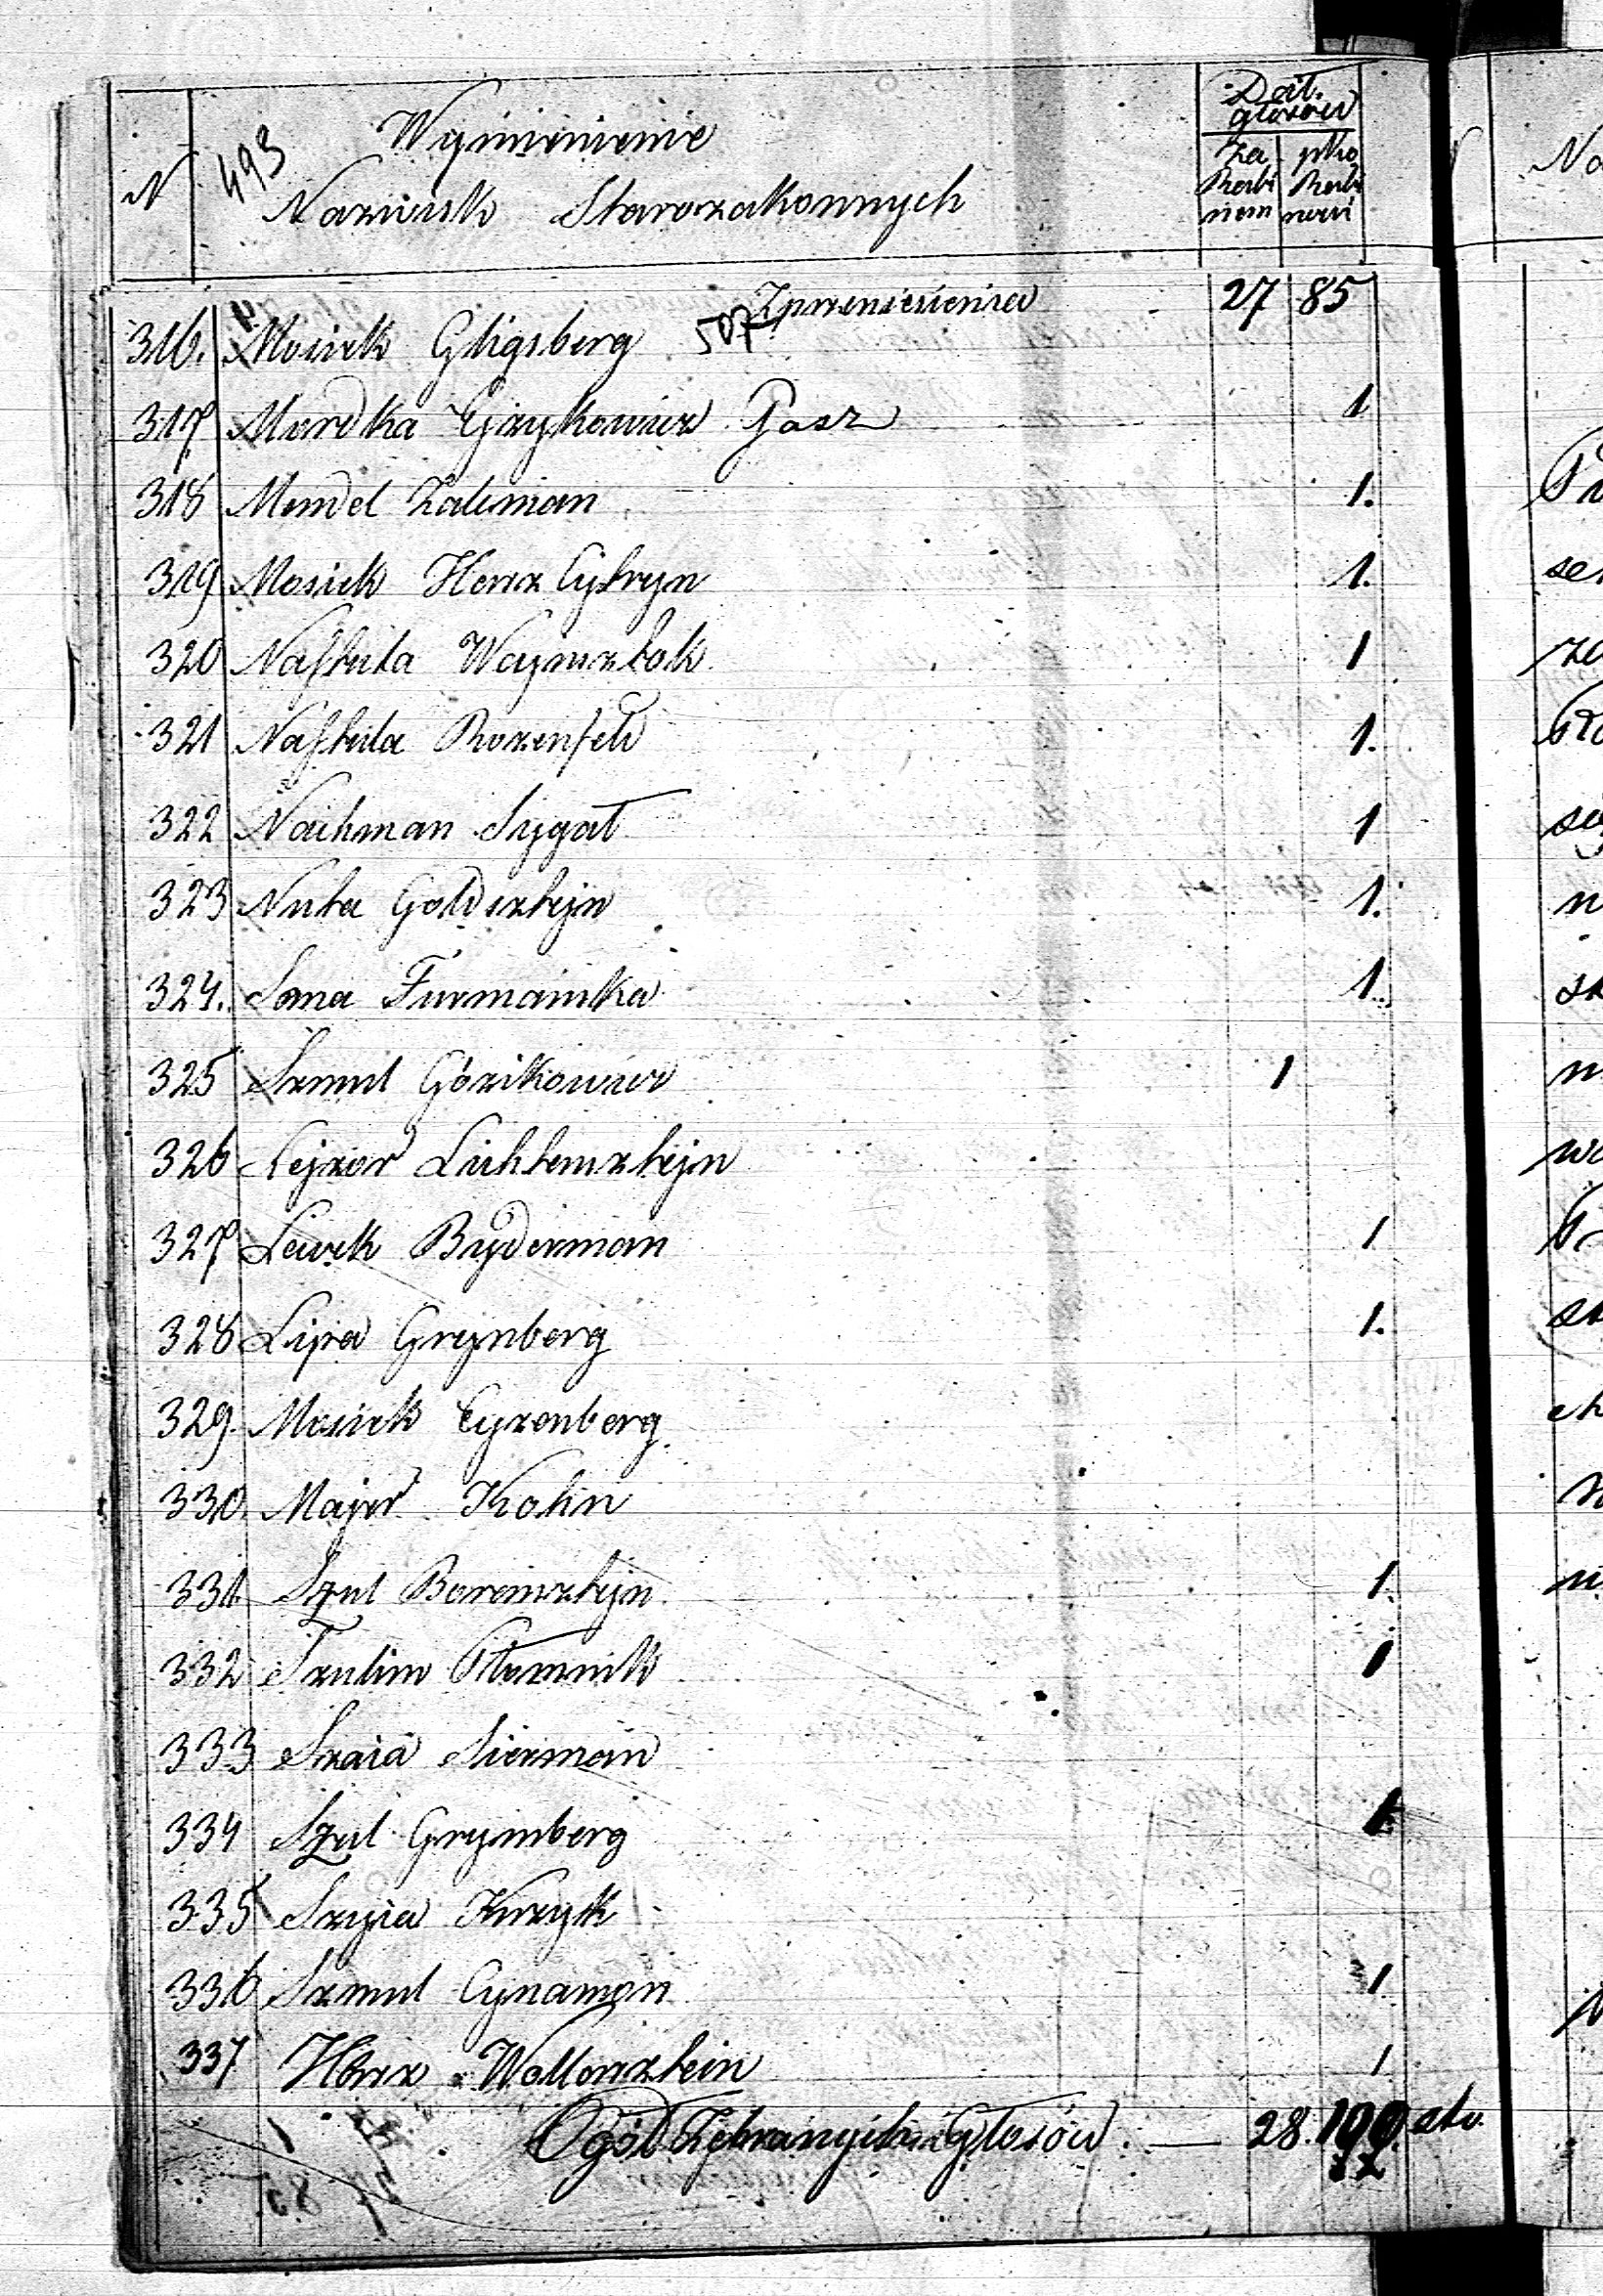 N 493 Wymienienie
Nazwisk Starozakonnych
Dał.
głosów
za Rabinem | ptko Rabinowi
Z przeniesienia 27 85
316. Mosiek Gligsberg 507
317 Mordka Eyzykowicz Pasz 1
318 Mendel Zalcman 1.
319 Mosiek Hersz Cytryn 1.
320 Naftula Waynsztok 1
321 Naftula Rozenfeld 1.
322 Nachman Sygał 1
323 Nuta Goldsztejn 1.
324. Soma Furmańska 1.
325 Szmul Gózikowicz 1
326 Lejzor Lichtensztejn
327 Lewek Byderman 1
328 Lipa Grynberg 1.
329. Mosiek Cyzenberg.
330. Majer Kohn
331. Szul Borensztejn. 1.
332 Szulim Płomnik 1
333 Szaia Sierman
334 Szul Grynberg 1
335 Szyia Kuzyk
336 Szmul Cynamon 1
337 Hersz Wallersztein 1
Ogół Zebranych Głosów. — 28. 100. sto